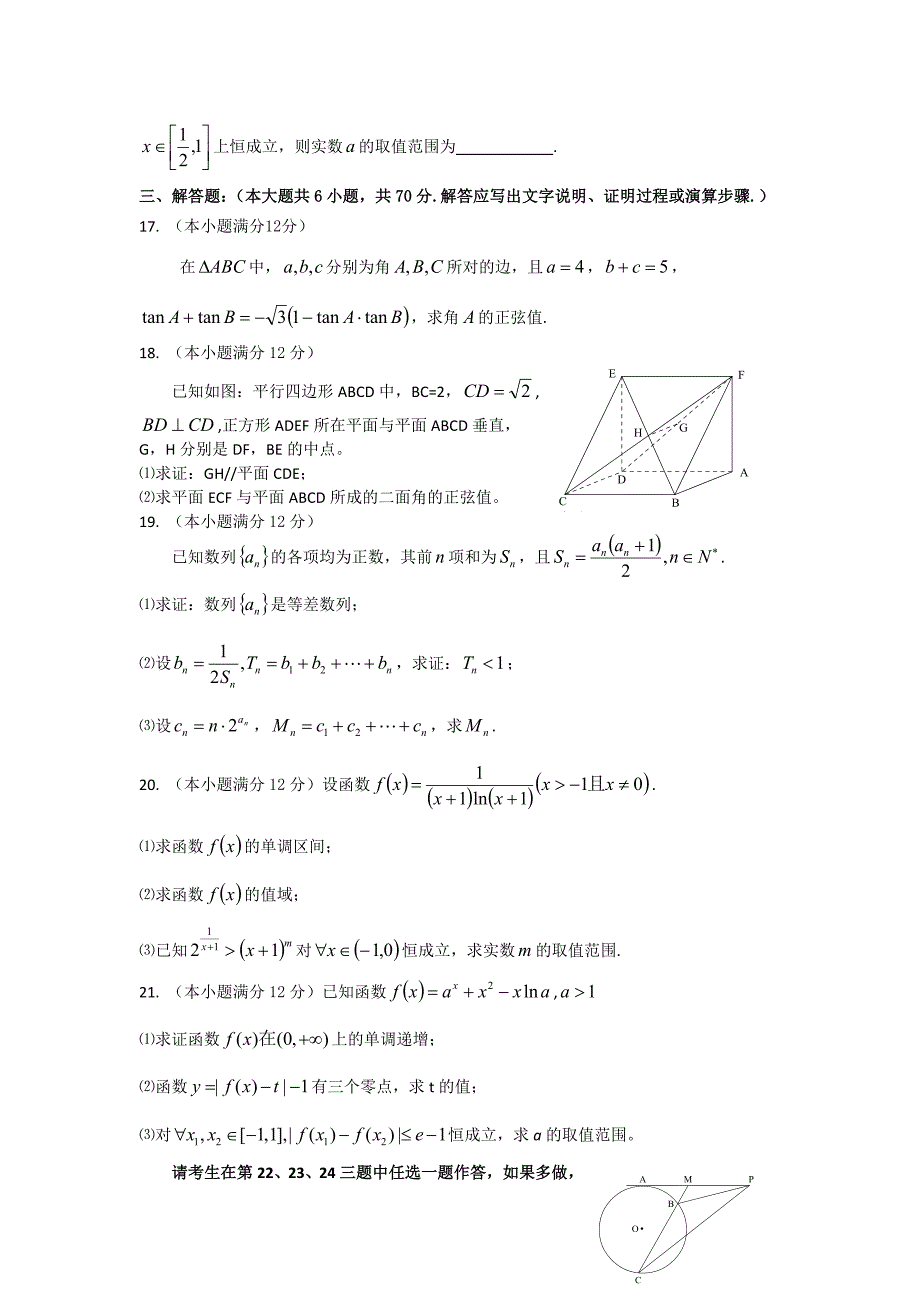 x∈[1/2,1]上恒成立，则实数a的取值范围为____________.
三、解答题：（本大题共6小题，共70分.解答应写出文字说明、证明过程或演算步骤.）
17. （本小题满分12分）
在ΔABC中，a,b,c分别为角A,B,C所对的边，且a=4，b+c=5，
tan A+tan B=-√3(1-tan A·tan B)，求角A的正弦值.
18. （本小题满分12分）
已知如图：平行四边形ABCD中，BC=2，CD=√2，
BD⊥CD,正方形ADEF所在平面与平面ABCD垂直，
G，H分别是DF，BE的中点。
⑴求证：GH//平面CDE；
⑵求平面ECF与平面ABCD所成的二面角的正弦值。
E F
H G
D A
C B
19. （本小题满分12分）
已知数列{aₙ}的各项均为正数，其前n项和为Sₙ，且Sₙ=aₙ(aₙ+1)/2,n∈N*.
⑴求证：数列{aₙ}是等差数列；
⑵设bₙ=1/(2Sₙ),Tₙ=b₁+b₂+⋯+bₙ，求证：Tₙ<1；
⑶设cₙ=n·2^(aₙ)，Mₙ=c₁+c₂+⋯+cₙ，求Mₙ.
20. （本小题满分12分）设函数f(x)=1/((x+1)ln(x+1))(x>-1且x≠0).
⑴求函数f(x)的单调区间；
⑵求函数f(x)的值域；
⑶已知2^(1/(x+1))>(x+1)^m对∀x∈(-1,0)恒成立，求实数m的取值范围.
21. （本小题满分12分）已知函数f(x)=a^x+x²-xln a,a>1
⑴求证函数f(x)在(0,+∞)上的单调递增；
⑵函数y=|f(x)-t|-1有三个零点，求t的值；
⑶对∀x₁,x₂∈[-1,1],|f(x₁)-f(x₂)|≤e-1恒成立，求a的取值范围。
请考生在第22、23、24三题中任选一题作答，如果多做，
A M P
B
O
C